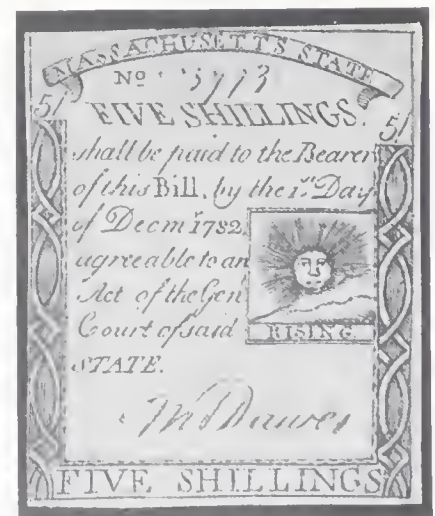 MASSACHUSETTS STATE
No. 5713
5/ FIVE SHILLINGS. 5/
shall be paid to the Bearer
of this Bill, by the 1st Day
of Decmr 1782
agreeable to an
Act of the Gen
Court of said
STATE.
RISING
FIVE SHILLINGS